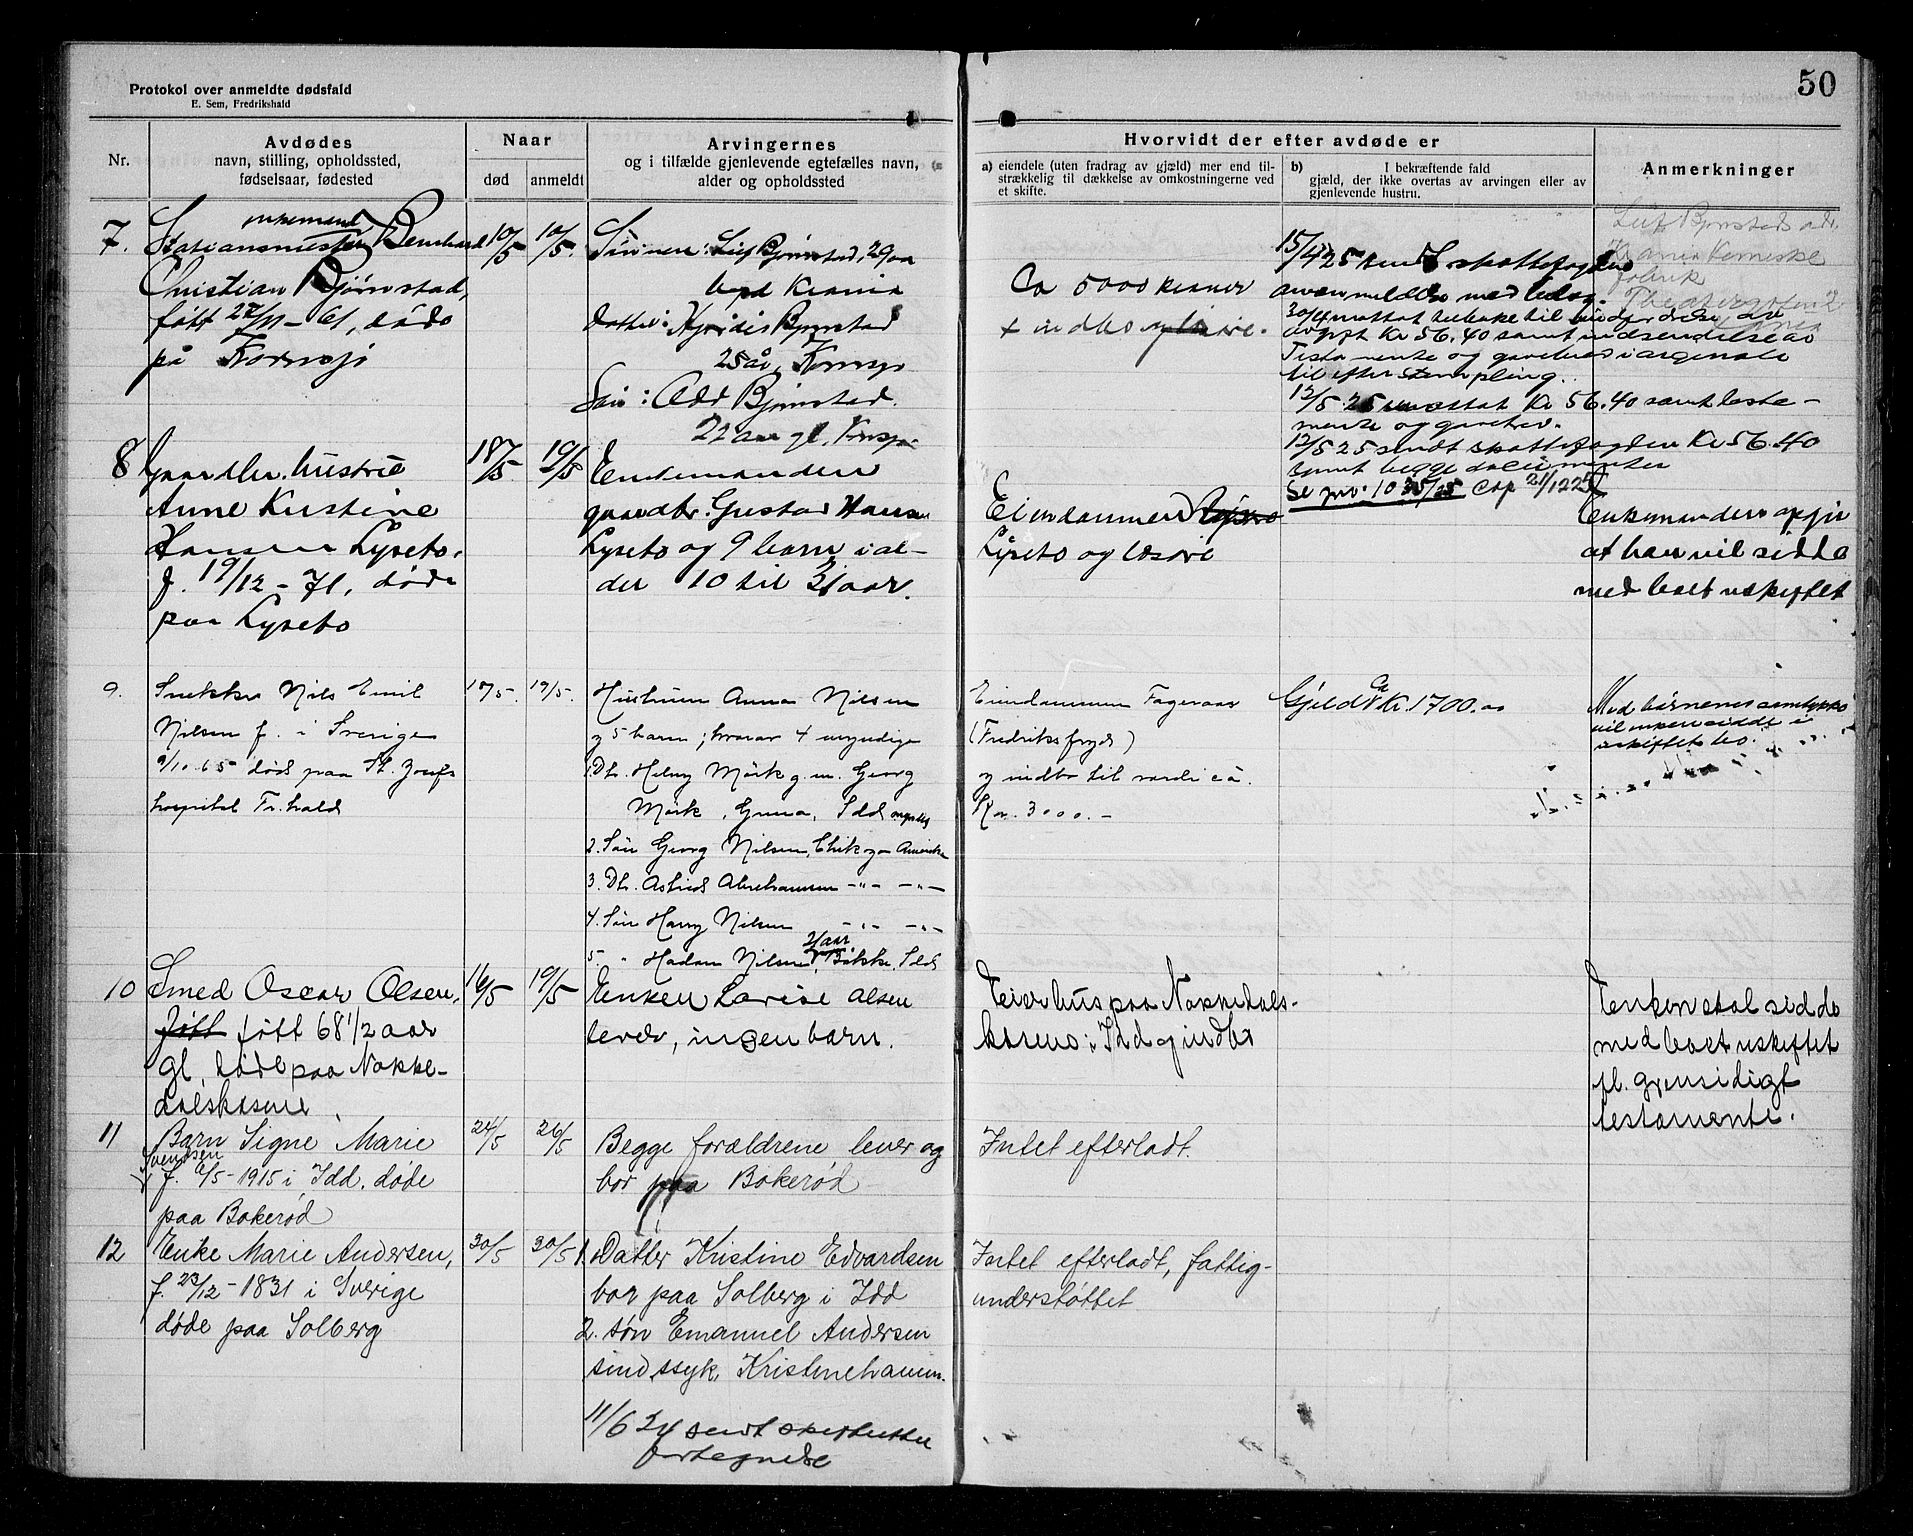 50
Protokol over anmeldte dødsfald
E. Sem, Fredrikshald
Nr.
Avdødes
navn, stilling, opholdssted,
fødselsaar, fødested
Naar
død
anmeldt
Arvingernes
og i tilfælde gjenlevende egtefælles navn,
alder og opholdssted
Hvorvidt der efter avdøde er
a) eiendele (uten fradrag av gjæld) mer end til-
strækkelig til dækkelse av omkostningerne ved
et skifte.
b) I bekræftende fald
gjæld, der ikke overtas av arvingen eller av
gjenlevende hustru.
Anmerkninger
7.
enkemand
Stationsmester Bernhard
Christian Bjørnstad,
født 22/11-61, døde
på Kornsjø
10/5
10/5.
Sønnen: Leif Bjørnstad, 29 aa
Krania
datter: Hjørdis Bjørnstad
25 år, Kornsjø
Søn: Odd Bjørnstad.
22 aar gl. Kornsjø.
Ca 5000 kroner
+ indbo
15/4 25
30/4 mottat tilbake til
Kr 56.40 samt indsendelse av
Testamente og gavebrev i originale
til efterstempling.
12/5 25 mottat Kr 56.40 samt testa-
mente og gavebrev.
12/5 25 sendt skattefogden Kr 56.40
samt begge dokumenter
Leif Bjørnstads adr.
Krania Kemiske
fabrik
Theatergaten 2
8
Gaardbr. hustru
Anne Kristine
Hansen Lyseto,
f. 19/12-71, døde
paa Lyseto
18/5
19/5
Enkemanden
gaardbr. Gustav Hansen
Lyseto og 9 barn i al-
der 10 til 31 aar.
Eiendommen
Lyseto og løsøre
Enkemanden opgir
at han vil sidde
med boet uskiftet
9.
Snekker Nils Emil
Nilsen f. i Sverige
9/10 65 død paa St. Josefs
hospital Fr.hald
17/5.
19/5.
Hustruen Anna Nilsen
og 5 barn; hvorav 4 myndige
1. Dt. Helny Mörk g. m. Georg
Mörk, , Idd
2. Søn Georg Nilsen, Chikago Amerika
3. Dt. Astrid Abrahamsen -"- -"-
4. Søn Harry Nilsen -"- -"-
21 aar
5 " Nilsen, , Idd
Eiendommen Fageraas
(Fredriksfryd)
og indbo til værdi ca.
Kr. 3000.-
Ca
Gjeld Kr. 1700.00
Med børnenes samtykke
vil enken sidde i
uskiftet bo.
10
Smed Oscar Olsen,
født født 68 1/2 aar
gl, døde paa Nokke-
dalskasene,
16/5
19/5
Enken Lovise Olsen
lever, ingen barn.
Eier hus paa Nokkedals-
kasene i Idd og indbo
Enken skal sidde
med boet uskiftet
fl. gjensidigt
testamente.
11
Barn Signe Marie
Svendsen
f. 6/5-1915 i Idd, døde
paa Bokerød
24/5
26/5
Begge forældrene lever og
bor paa Bokerød
Intet efterladt.
12
Enke Marie Andersen,
f. 23/12-1831 i Sverige
døde paa Solberg
30/5
30/5
1. Datter Kristine Edvardsen
bor paa Solberg i Idd
2. søn Emanuel Andersen
sindssyk, Kristinehamn.
11/6 24 sendt
fortegnelse
Intet efterladt, fattig-
understøttet